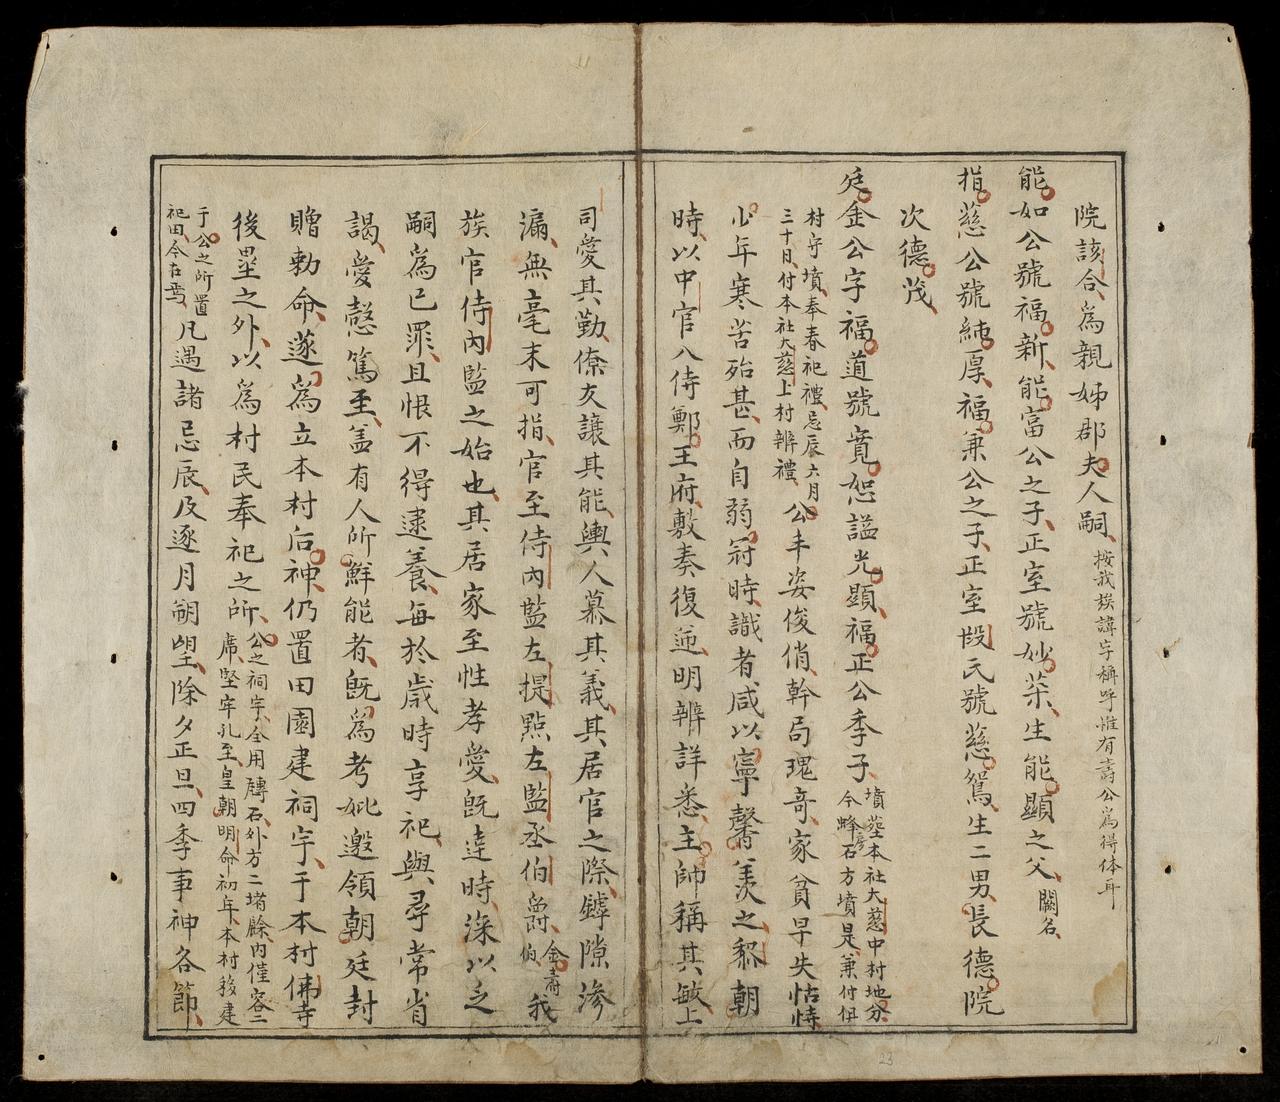 院該合為親姊郡夫人嗣按我族諱字稱呼惟有壽公為得体耳
能如公號福新能富公之子正室號妙菜生能顯之父闕名
指慈公號純厚福兼公之子正室段氏號慈鴛生二男長德院
次德茂
廷金公字福道號寬恕謚光顯福正公季子墳塋本社大慈中村地分今蜂房石方墳是兼付俱
村守墳奉春祀禮忌辰六月三十日付本社大慈上村辨禮公丰姿俊俏幹局瑰奇家貧早失怙恃
少年寒苦殆甚而自弱冠時識者咸以寧馨羨之黎朝
時以中官入侍鄭王府敷奏復逆明辨詳悉主帥稱其敏上
司愛其勤僚友讓其能輿人慕其義其居官之際罅隙滲
漏無毫末可指官至侍內監左提點左監丞伯爵金壽伯我
族官侍內監之始也其居家至性孝愛既達時深以乏
嗣為已罪且恨不得逮養每於歲時享祀與尋常省
謁愛慤篤至盖有人所鮮能者既為考妣邀領朝廷封
贈勅命遂為立本村后神仍置田園建祠宇于本村佛寺
後壘之外以為村民奉祀之所公之祠宇全用磚石外方二堵餘內僅容二席堅牢孔至皇朝明命初年本村移建
于公之所置祀田今在焉凡遇諸忌辰及逐月朔望除夕正旦四季事神各節